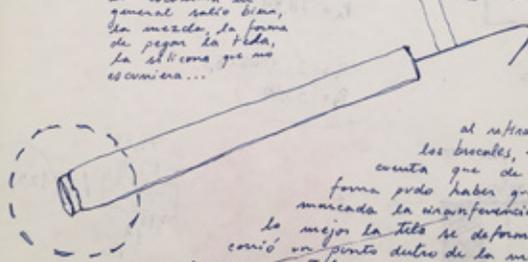 general salio bien,
la mezcla, la forma
de pegar la tela,
la silicona que no
escurriera...
al retira
los bocales,
cuenta que de
forma pudo haber q
marcada la circunferenci
lo mejor la tela se deform
corrió un punto dentro de la m